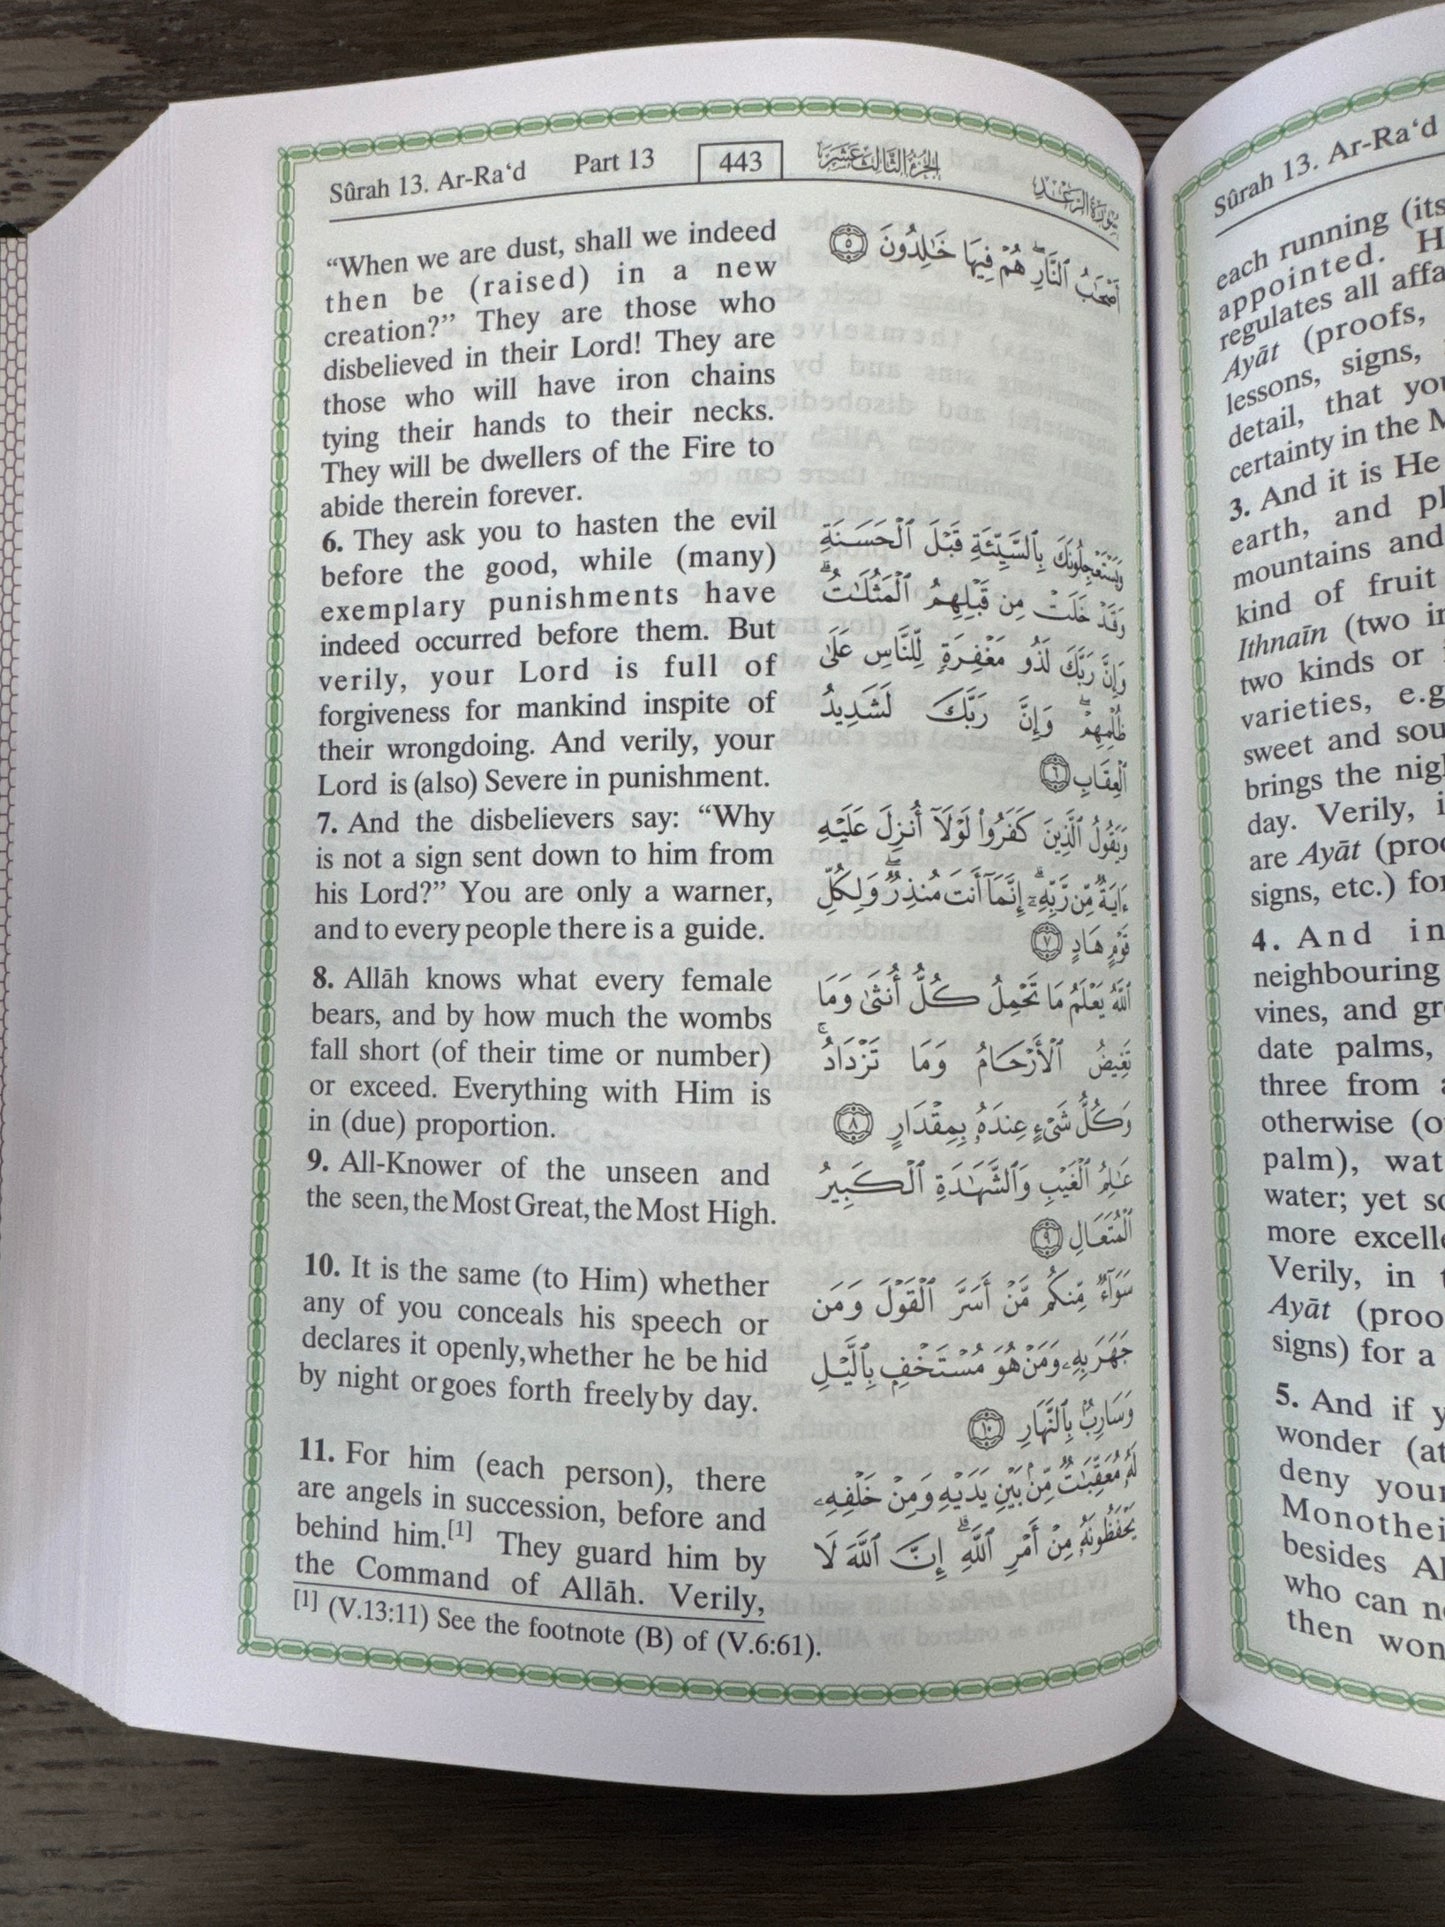 Sûrah 13. Ar-Ra‘d Part 13 443 الجزء الثالث عشر سورة الرعد
“When we are dust, shall we indeed
then be (raised) in a new
creation?” They are those who
disbelieved in their Lord! They are
those who will have iron chains
tying their hands to their necks.
They will be dwellers of the Fire to
abide therein forever.
6. They ask you to hasten the evil
before the good, while (many)
exemplary punishments have
indeed occurred before them. But
verily, your Lord is full of
forgiveness for mankind inspite of
their wrongdoing. And verily, your
Lord is (also) Severe in punishment.
7. And the disbelievers say: “Why
is not a sign sent down to him from
his Lord?” You are only a warner,
and to every people there is a guide.
8. Allāh knows what every female
bears, and by how much the wombs
fall short (of their time or number)
or exceed. Everything with Him is
in (due) proportion.
9. All-Knower of the unseen and
the seen, the Most Great, the Most High.
10. It is the same (to Him) whether
any of you conceals his speech or
declares it openly,whether he be hid
by night or goes forth freely by day.
11. For him (each person), there
are angels in succession, before and
behind him.[1] They guard him by
the Command of Allāh. Verily,
أَصْحَٰبُ ٱلنَّارِۖ هُمْ فِيهَا خَٰلِدُونَ ٥
وَيَسْتَعْجِلُونَكَ بِٱلسَّيِّئَةِ قَبْلَ ٱلْحَسَنَةِ
وَقَدْ خَلَتْ مِن قَبْلِهِمُ ٱلْمَثُلَٰتُۗ
وَإِنَّ رَبَّكَ لَذُو مَغْفِرَةٍ لِّلنَّاسِ عَلَىٰ
ظُلْمِهِمْۖ وَإِنَّ رَبَّكَ لَشَدِيدُ
ٱلْعِقَابِ ٦
وَيَقُولُ ٱلَّذِينَ كَفَرُوا۟ لَوْلَآ أُنزِلَ عَلَيْهِ
ءَايَةٌ مِّن رَّبِّهِۦٓۗ إِنَّمَآ أَنتَ مُنذِرٌۖ وَلِكُلِّ
قَوْمٍ هَادٍ ٧
ٱللَّهُ يَعْلَمُ مَا تَحْمِلُ كُلُّ أُنثَىٰ وَمَا
تَغِيضُ ٱلْأَرْحَامُ وَمَا تَزْدَادُۚ
وَكُلُّ شَىْءٍ عِندَهُۥ بِمِقْدَارٍ ٨
عَٰلِمُ ٱلْغَيْبِ وَٱلشَّهَٰدَةِ ٱلْكَبِيرُ
ٱلْمُتَعَالِ ٩
سَوَآءٌ مِّنكُم مَّنْ أَسَرَّ ٱلْقَوْلَ وَمَن
جَهَرَ بِهِۦ وَمَنْ هُوَ مُسْتَخْفٍۭ بِٱلَّيْلِ
وَسَارِبٌۢ بِٱلنَّهَارِ ١٠
لَهُۥ مُعَقِّبَٰتٌ مِّنۢ بَيْنِ يَدَيْهِ وَمِنْ خَلْفِهِۦ
يَحْفَظُونَهُۥ مِنْ أَمْرِ ٱللَّهِۗ إِنَّ ٱللَّهَ لَا
[1] (V.13:11) See the footnote (B) of (V.6:61).
Sûrah 13. Ar-Ra‘d
each running (its
appointed. H
regulates all affa
Ayāt (proofs,
lessons, signs,
detail, that you
certainty in the M
3. And it is He
earth, and pl
mountains and
kind of fruit
Ithnaīn (two in
two kinds or
varieties, e.g
sweet and sou
brings the nigh
day. Verily, i
are Ayāt (proo
signs, etc.) for
4. And in
neighbouring
vines, and gr
date palms,
three from a
otherwise (o
palm), wat
water; yet so
more excelle
Verily, in t
Ayāt (proo
signs) for a
5. And if y
wonder (at
deny your
Monothei
besides Al
who can no
then won